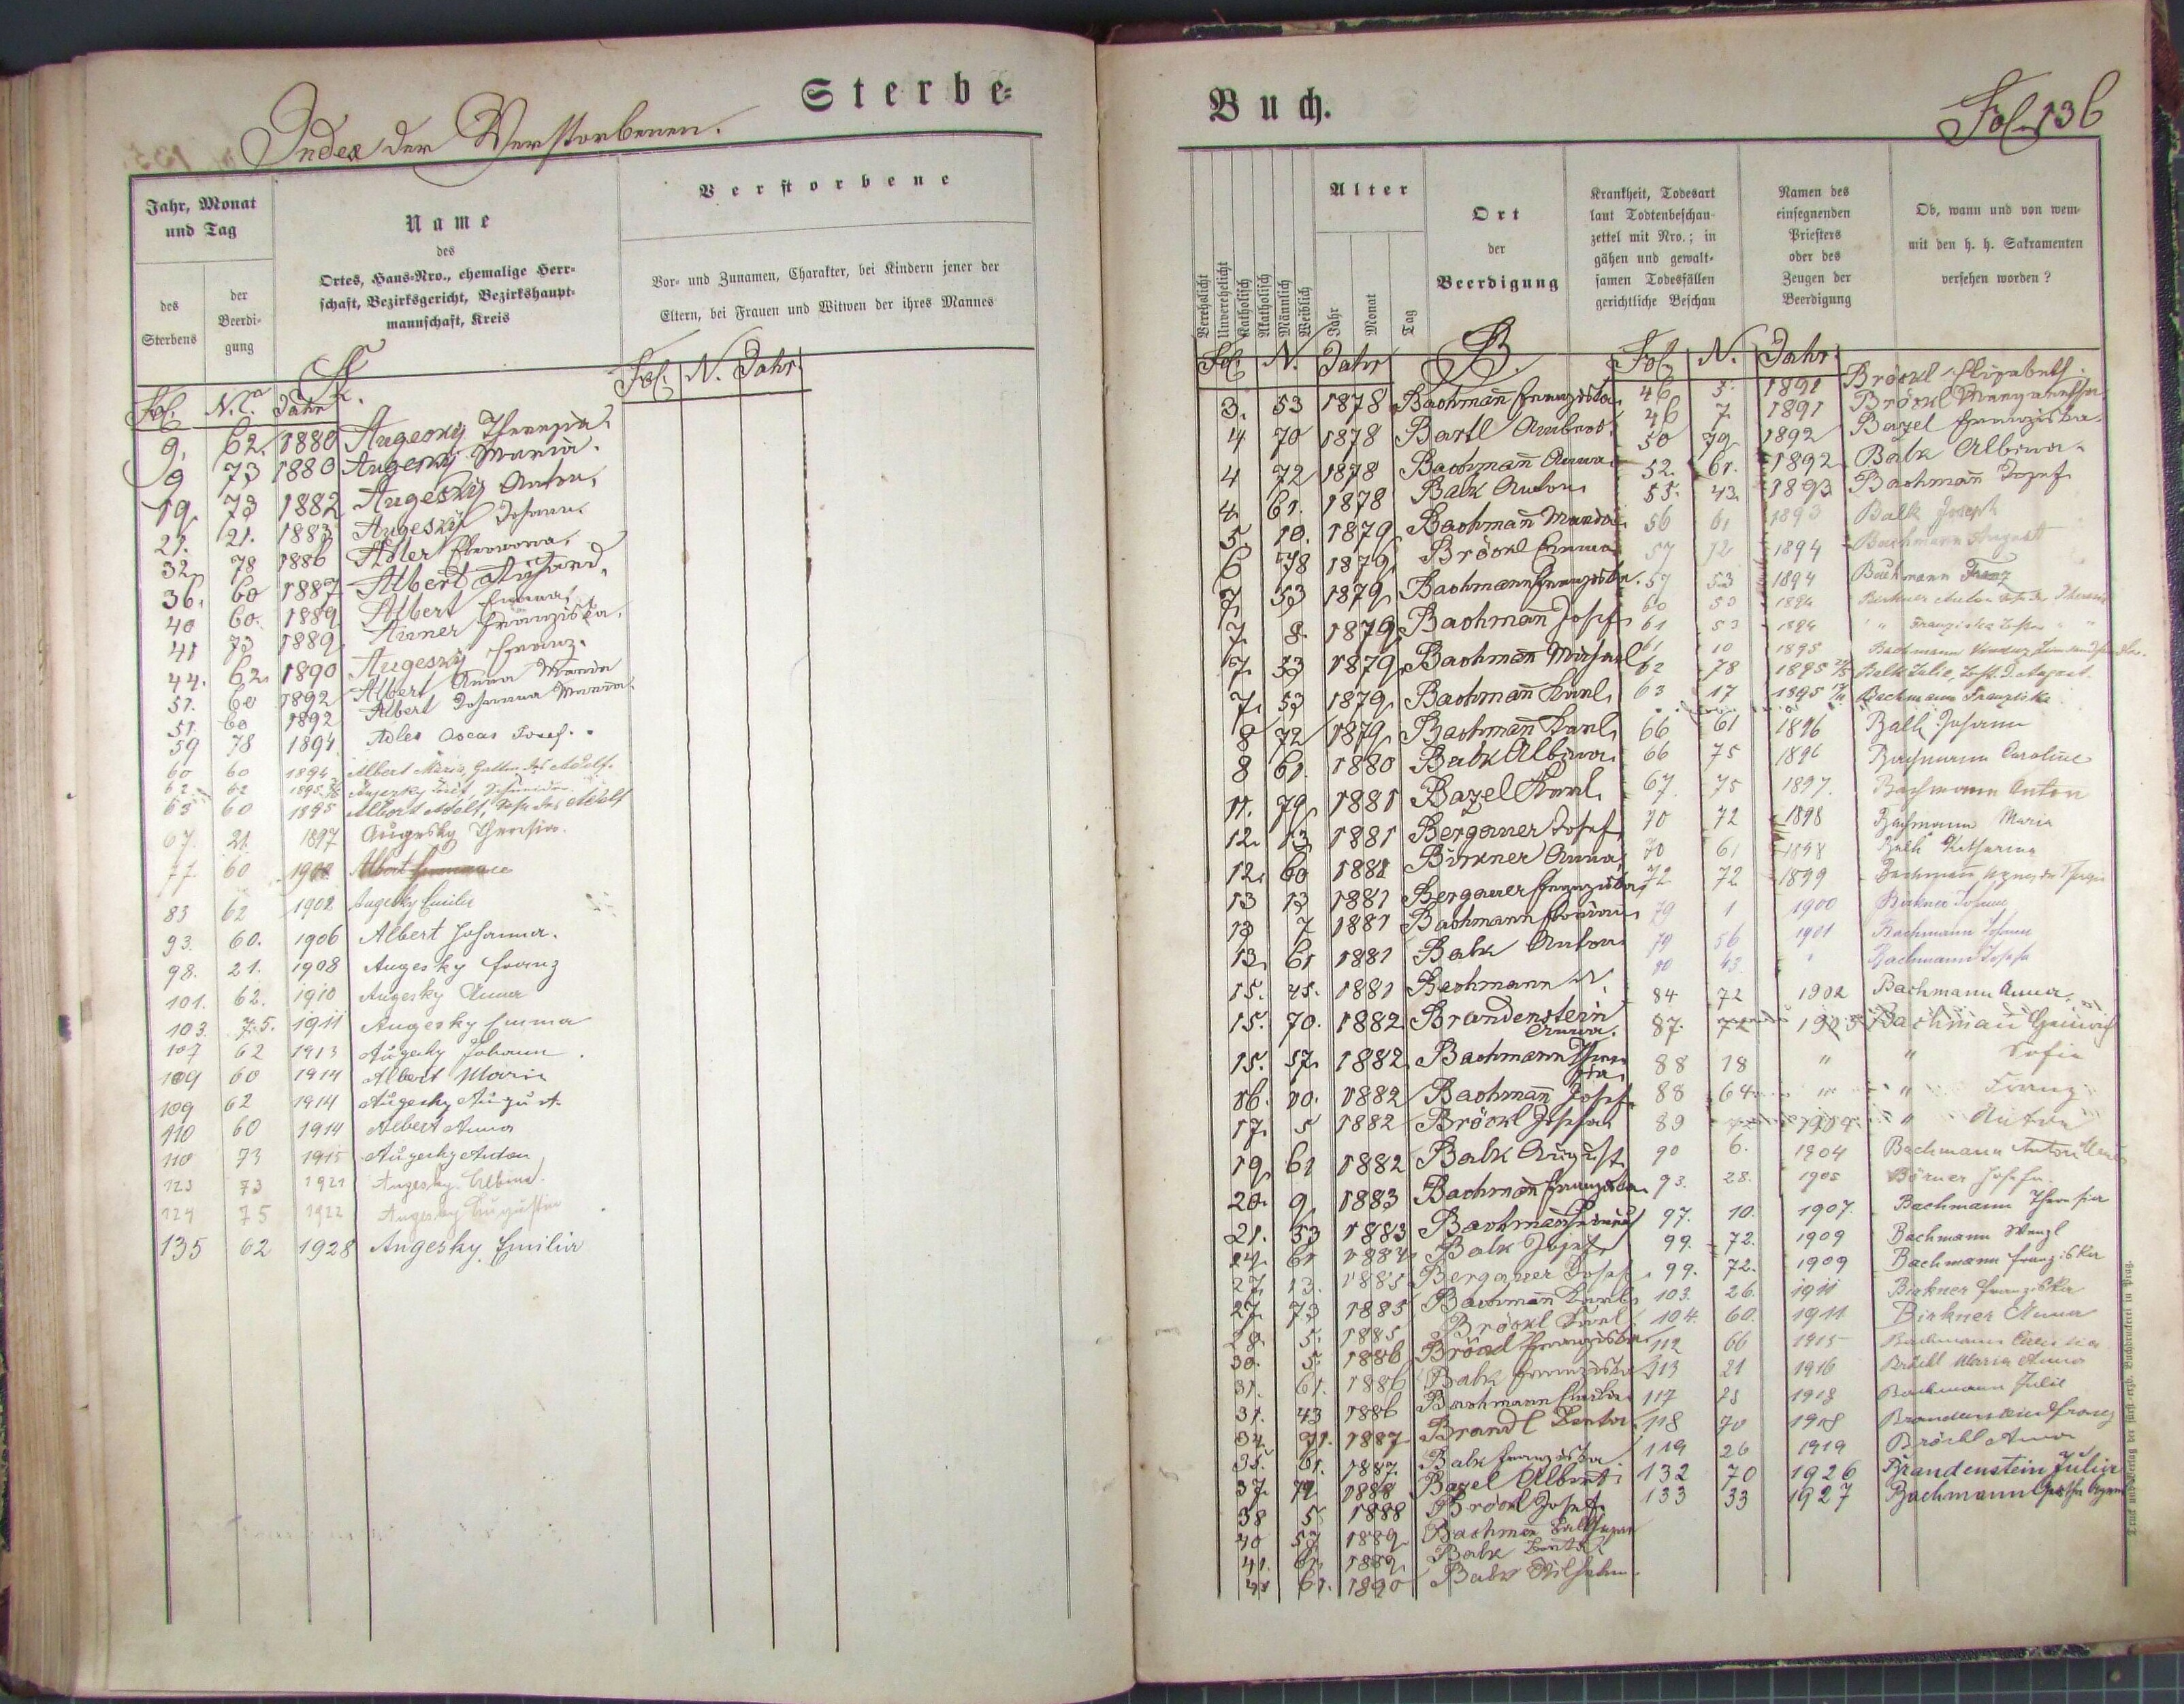 Sterbe=
Index der Verstorbenen.
Jahr, Monat
und Tag
des
Sterbens
der
Beerdi-
gung
Name
des
Ortes, Haus-Nro., ehemalige Herr-
schaft, Bezirksgericht, Bezirkshaupt-
mannschaft, Kreis
Verstorbene
Vor- und Zunamen, Charakter, bei Kindern jener der
Eltern, bei Frauen und Witwen der ihres Mannes
A.
Fol. N. Jahr
Fol. N. Jahr
9. 62. 1880 Augesky Theresia
9 73 1880 Augesky Maria.
19. 73 1882 Augesky Anton.
21. 21. 1883 Augesky Johann
32. 78 1886 Adler
36. 60 1887 Albert
40 60. 1889 Albert Emma
41 73 1889 Franziska.
44. 62. 1890 Augesky Franz.
51. 60 1892 Albert Anna Maria
51. 60 1892 Albert Johanna Maria
59 78 1894 Adler Oscar Josef.
60 60 1894 Albert Maria, Gattin des Adolf.
62 62 1895
63 60 1895 Albert Adolf, Sohn des Adolf
67. 21. 1897 Augesky Theresia.
77. 60 1900 Albert
83 62 1902 Augesky Emilie
93. 60. 1906 Albert Johanna.
98. 21. 1908 Augesky Franz
101. 62. 1910 Augesky Anna
103. 75. 1911 Augesky Emma
107 62 1913 Augesky Johann
109 60 1914 Albert Maria
109 62 1914 Augesky August
110 60 1914 Albert Anna
110 73 1915 Augesky Anton
123 73 1921 Augesky Albina.
124 75 1922 Augesky Augustin
135 62 1928 Augesky Emilia
Buch.
Fol. 136
Verehelicht
Unverehelicht
Katholisch
Akatholisch
Männlich
Weiblich
Alter
Jahr
Monat
Tag
Ort
der
Beerdigung
Krankheit, Todesart
laut Todtenbeschau-
zettel mit Nro.; in
gähen und gewalt-
samen Todesfällen
gerichtliche Beschau
Namen des
einsegnenden
Priesters
oder des
Zeugen der
Beerdigung
Ob, wann und von wem
mit den h. h. Sakramenten
versehen worden?
Fol. N. Jahr B.
3. 53 1878 Bachman̄ Franziska
4 70 1878 Bartl
4 72 1878 Bachman̄ Anna
4. 61. 1878 Balk Anton
5. 10. 1879 Bachman̄
6 78 1879 Bröckl Emma
7. 53 1879 Bachmann Franziska.
7. 8. 1879 Bachman̄ Josef
7. 53 1879 Bachman̄ Michael
7. 53 1879 Bachman̄ Karl
8 72 1879 Bachman̄ Karl
8 61. 1880 Balk Albina
11. 79 1881 Bazel Karl
12. 13 1881 Bergauer Josef
12. 60 1881 Birkner Anna
13 13 1881 Bergauer Franziska
13 7 1881 Bachmann
13. 61 1881 Balk Anton
15. 45. 1881 Bachmann N.
15. 70. 1882 Brandenstein
Anna.
15. 57. 1882 Bachmann Theresia
16. 10. 1882 Bachman̄ Josef
17. 5 1882 Bröckl Josefa
19 61 1882 Balk August
20. 9. 1883 Bachman̄ Franziska
21. 53 1883 Bachman̄ Heinrich
24. 61 1884 Balk Josef
27. 13. 1885 Bergauer Josef
27. 73 1885 Bachman̄ Karl
28. 5. 1885 Bröckl Karl
30. 5. 1886 Bröckl Franziska
31. 61. 1886 Balk Franziska
31. 43 1886 Bachmann Emilia
34. 71. 1887 Brandl
35. 61. 1887 Balk Franziska
37. 79 1888 Bazel Albert
38 5 1888 Bröckl Josef
40 57 1889 Bachman̄ Balthasar
41. 61. 1889 Balk
61. 1890 Balk Wilhelm
Fol. N. Jahr
46 5. 1891 Bröckl Elisabeth.
46 7. 1891 Bröckl Margaretha
50 79 1892 Bazel Franziska.
52. 61. 1892 Balk Albina.
55. 43. 1893 Bachman̄ Josef
56 61 1893 Balk Joseph
57 72 1894 Bachmann August
57 53 1894 Bachmann Franz
60 53 1894 Birkner Anton
61 53 1894 " Franziska
61 10 1895 Bachmann
62 78 1895 Balk Julie, Tocht. d. August.
63 17 1895 Bachmann Franziska
66 61 1896 Balk Johann
66 75 1896 Bachmann Caroline
67. 75 1897. Bachmann Anton
70 72 1898 Bachmann Maria
70 61 1898 Balk Katharina
72 72 1899 Bachmann
79 1 1900 Birkner Johann
79 56 1901 Bachmann Johann
80 43 " Bachmann Josefa
84 72 1902 Bachmann Anna
87. 72 1903 Bachman Heinrich
88 18 " " Sofie
88 64 " " Franz
89 1904 " Anton
90 6. 1904 Bachmann Anton
93. 28. 1905 Börner Josefa.
97. 10. 1907. Bachmann Theresia
99. 72. 1909 Bachmann Wenzl
99. 72. 1909 Bachmann Franziska
103. 26. 1911 Birkner Franziska
104. 60. 1911 Birkner Anna
112 66 1915 Bachmann
113 21 1916 Bröckl Maria Anna
117 75 1918 Bachmann Julie
118 70 1918 Brandenstein Franz
119 26 1919 Bröckl Anna
132 70 1926 Brandenstein Julia
133 33 1927 Bachmann
Druck und Verlag der fürst.-erzb. Buchdruckerei in Prag.